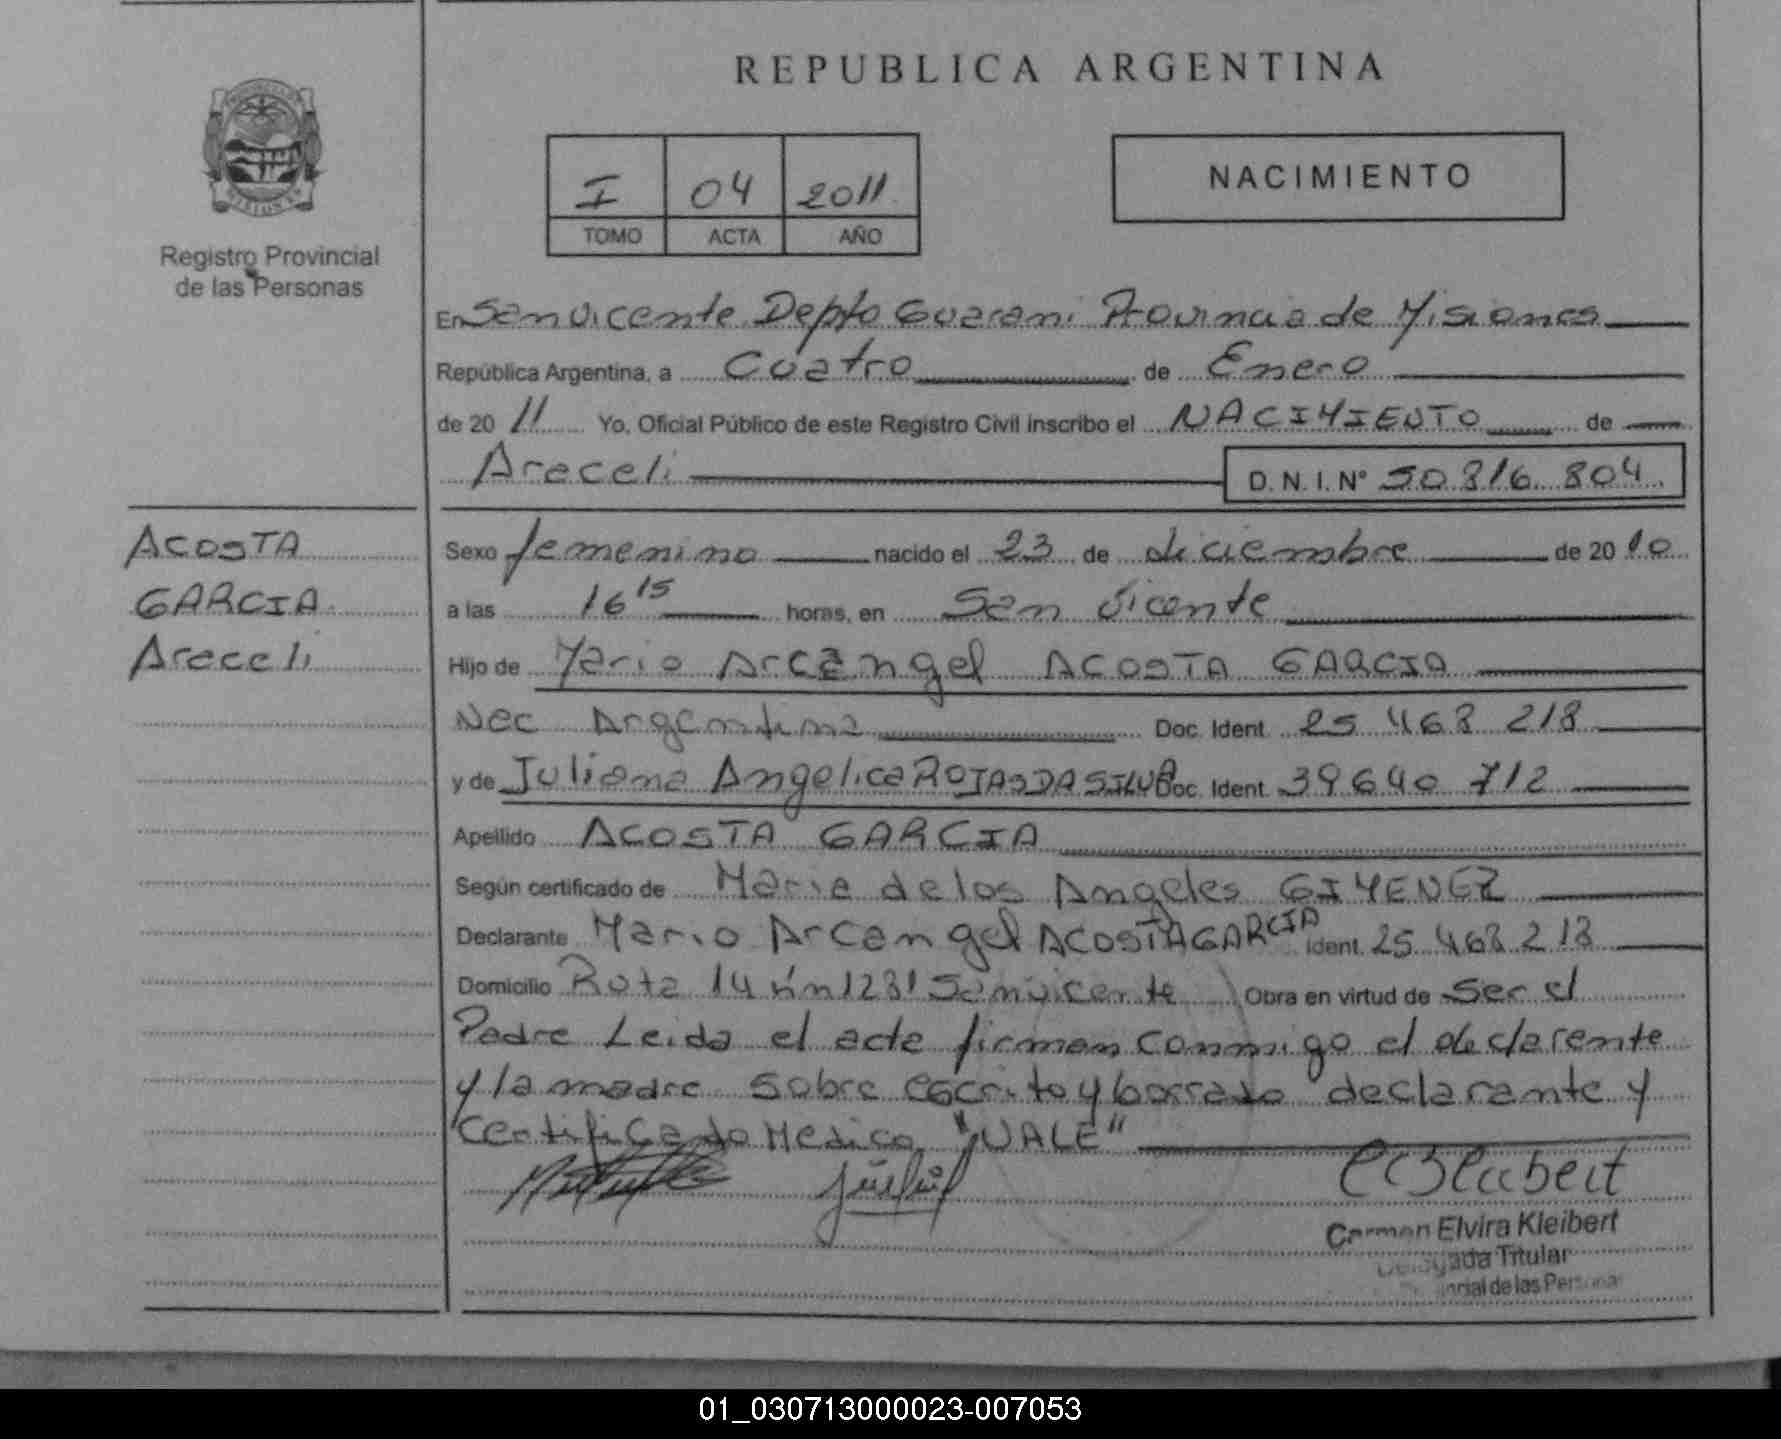 REPUBLICA ARGENTINA
I 04 2011
TOMO ACTA AÑO
NACIMIENTO
Registro Provincial
de las Personas
En San Vicente Depto Guarani Provincia de Misiones
República Argentina, a Cuatro de Enero
de 20 11 Yo, Oficial Público de este Registro Civil inscribo el NACIMIENTO de
Araceli D. N. I. Nº 50.816.804
ACOSTA
GARCIA
Araceli
Sexo femenino nacido el 23 de diciembre de 20 10
a las 16 15 horas, en San Vicente
Hijo de Mario Arcangel ACOSTA GARCIA
Nac Argentina Doc. Ident. 25 468 218
y de Juliana Angelica ROJAS DA SILVA Doc. Ident. 39640 712
Apellido ACOSTA GARCIA
Según certificado de Maria de los Angeles GIMENEZ
Declarante Mario Arcangel ACOSTA GARCIA Ident. 25 468 218
Domicilio Ruta 14 km 1231 San Vicente Obra en virtud de Ser el
Padre Leida el acta firman conmigo el declarante
y la madre sobre escrito y borrado declarante y
certificado Medico "VALE"
Carmen Elvira Kleibert
Delegada Titular
Provincial de las Personas
01_030713000023-007053